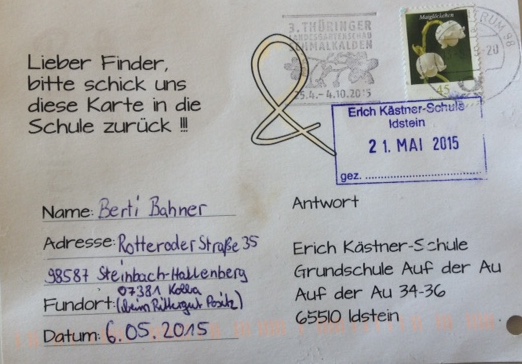 3. THÜRINGER
LANDESGARTENSCHAU
SCHMALKALDEN
25.4.- 4.10.2015
Maiglöckchen
45
Lieber Finder,
bitte schick uns
diese Karte in die
Schule zurück !!!
Erich Kästner-Schule
Idstein
21. MAI 2015
gez.
Name: Berti Bahner
Adresse: Rotteroder Straße 35
98587 Steinbach-Hallenberg
07381 Kolba
Fundort: (beim Rittergut Positz)
Datum: 6.05.2015
Antwort
Erich Kästner-Schule
Grundschule Auf der Au
Auf der Au 34-36
65510 Idstein